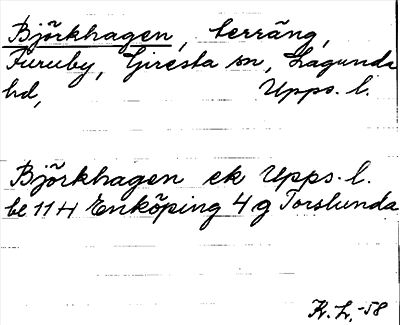 Björkhagen, terräng,
Furuby, Giresta sn, Lagunda
hd, Upps. l.
Björkhagen ek Upps. l.
be 11 H Enköping 4 g Torslunda
K. L. -58